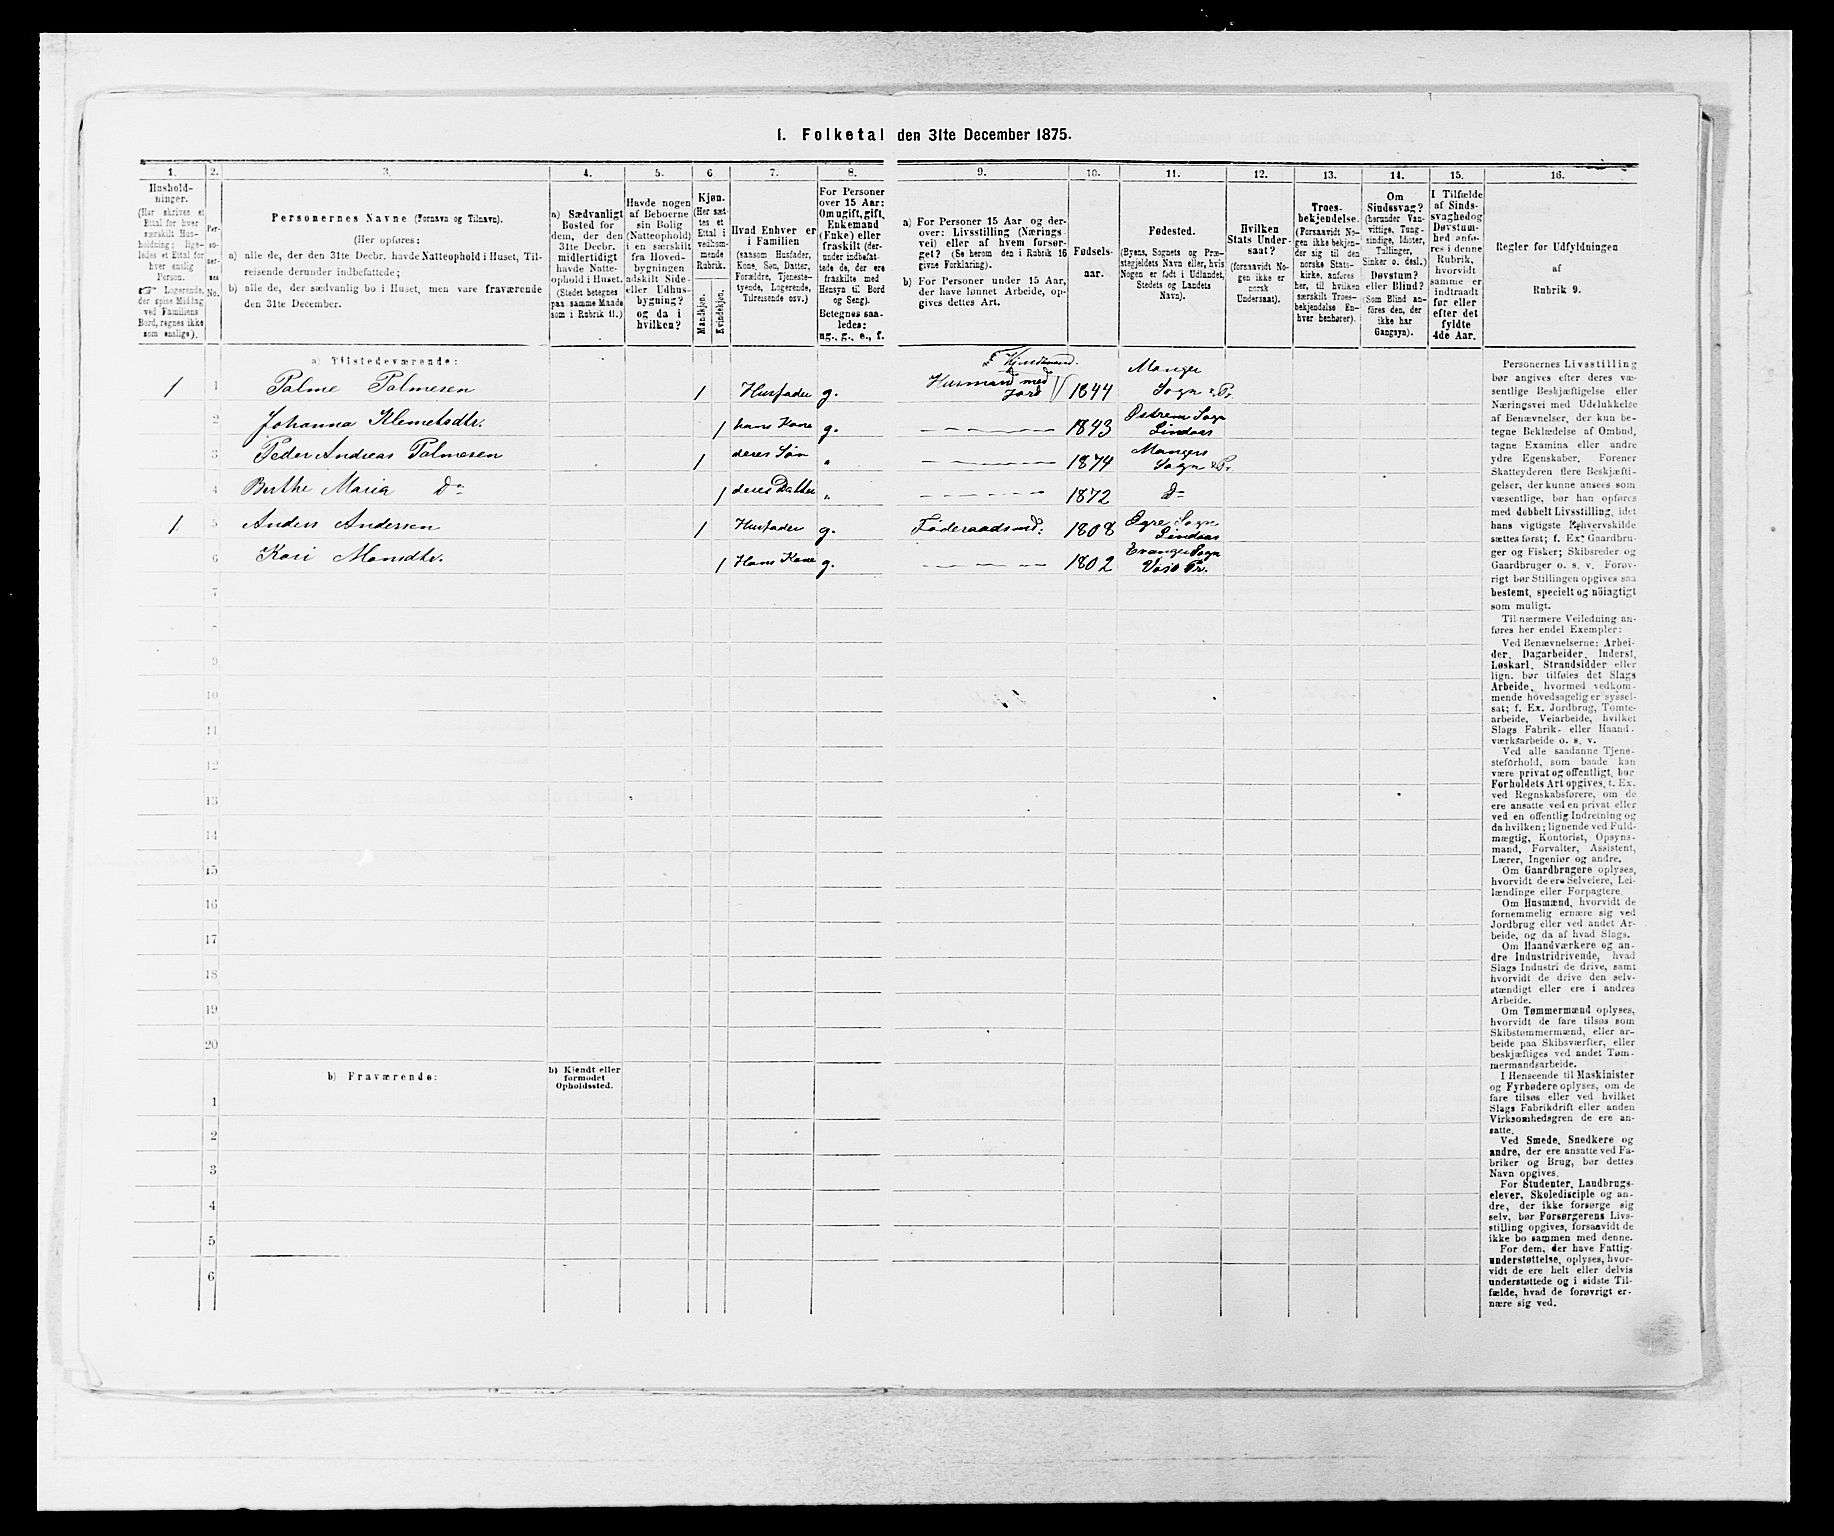 I. Folketal den 31te December 1875.
1. 2. 3. 4. 5. 6. 7. 8. 9. 10. 11. 12. 13. 14. 15. 16.
Hushold-
ninger.
(Her skrives et
Ettal for hver
særskilt Hus-
holdning; lige-
ledes et Ettal for
hver enslig
Person.
☞ Logerende,
der spise Middag
ved Familiens
Bord, regnes ikke
som enslige).
Per-
so-
ner-
nes
No.
Personernes Navne (Fornavn og Tilnavn).
(Her opføres:
a) alle de, der den 31te Decbr. havde Natteophold i Huset, Til-
reisende derunder indbefattede;
b) alle de, der sædvanlig bo i Huset, men vare fraværende
den 31te December.
a) Sædvanligt
Bosted for
dem, der den
31te Decbr.
midlertidigt
havde Natte-
ophold i Huset.
(Stedet betegnes
paa samme Maade
som i Rubrik 11.)
Havde nogen
af Beboerne
sin Bolig
(Natteophold)
i en særskilt
fra Hoved-
bygningen
adskilt Side-
eller Udhus-
bygning?
og da i
hvilken?
Kjøn.
(Her sæt-
tes et
Ettal i
vedkom-
mende
Rubrik.
Mandkjøn.
Kvindekjøn.
Hvad Enhver er
i Familien
(saasom Husfader,
Kone, Søn, Datter,
Forældre, Tjeneste-
tyende, Logerende,
Tilreisende osv.)
For Personer
over 15 Aar:
Om ugift, gift,
Enkemand
(Enke) eller
fraskilt (der-
under indbefat-
tede de, der ere
fraskilte med
Hensyn til Bord
og Seng).
Betegnes saa-
ledes:
ug., g., e., f.
a) For Personer 15 Aar og der-
over: Livsstilling (Nærings-
vei) eller af hvem forsør-
get? (Se herom den i Rubrik 16
givne Forklaring).
b) For Personer under 15 Aar,
der have lønnet Arbeide, op-
gives dettes Art.
Fødsels-
aar.
Fødested.
(Byens, Sognets og Præ-
stegjeldets Navn eller, hvis
Nogen er født i Udlandet,
Stedets og Landets
Navn).
Hvilken
Stats Under-
saat?
(forsaavidt No-
gen ikke er
norsk
Undersaat).
Troes-
bekjendelse.
(Forsaavidt No-
gen ikke bekjen-
der sig til den
norske Stats-
kirke, anføres
her, til hvilken
særskilt Troes-
bekjendelse En-
hver henhører).
Om
Sindssvag?
(herunder Van-
vittige, Tung-
sindige, Idioter,
Tullinger,
Sinker o. desl.)
Døvstum?
eller Blind?
(Som Blind an-
føres den, der
ikke har
Gangsyn).
I Tilfælde
af Sinds-
svaghed og
Døvstum-
hed anfø-
res i denne
Rubrik,
hvorvidt
samme er
indtraadt
før eller
efter det
fyldte
4de Aar.
Regler for Udfyldningen
af
Rubrik 9.
a) Tilstedeværende:
1 1 Palme Palmesen 1 Husfader g. Husmand med Jord 1844 Manger Sogn & Pr
2 Johanna Klemetsdtr. 1 hans Kone g. 1843 Østrem Sogn Lindaas
3 Peder Andreas Palmesen 1 deres Søn " 1874 Mangers Sogn & Pr
4 Berthe Maria Do 1 deres Datter " 1872 Do
1 5 Anders Andersen 1 Husfader g. Føderaadsmd: 1808 Sogn Lindaas
6 Kari Monsdtr. 1 Hans Kone g. 1802 Evanger Sogn Voss Pr.
7
9
10
11
12
13
14
15
16
17
18
19
20
b) Fraværende:
b) Kjendt eller
formodet
Opholdssted.
1
2
3
4
5
6
Personernes Livsstilling
bør angives efter deres væ-
sentlige Beskjæftigelse eller
Næringsvei med Udelukkelse
af Benævnelser, der kun be-
tegne Beklædelse af Ombud,
tagne Examina eller andre
ydre Egenskaber. Forener
Skatteyderen flere Beskjæfti-
gelser, der kunne ansees som
væsentlige, bør han opføres
med dobbelt Livsstilling, idet
hans vigtigste Erhvervskilde
sættes først; f. Ex. Gaardbru-
ger og Fisker; Skibsreder og
Gaardbruger o. s. v. Forøv-
rigt bør Stillingen opgives saa
bestemt, specielt og nöiagtigt
som muligt.
Til nærmere Veiledning an-
føres her endel Exempler:
Ved Benævnelserne: Arbei-
der, Dagarbeider, Inderst,
Løskarl, Strandsidder eller
lign. bør tilføies det Slags
Arbeide, hvormed vedkom-
mende hovedsagelig er syssel-
sat; f. Ex. Jordbrug, Tomte-
arbeide, Veiarbeide, hvilket
Slags Fabrik- eller Haand-
værksarbeide o. s. v.
Ved alle saadanne Tjene-
steforhold, som baade kan
være privat og offentligt, bør
Forholdets Art opgives, t. Ex.
ved Regnskabsførere, om de
ere ansatte ved en privat eller
ved en offentlig Indretning og
da hvilken; lignende ved Fuld-
mægtig, Kontorist, Opsyns-
mand, Forvalter, Assistent,
Lærer, Ingeniør og andre.
Om Gaardbrugere oplyses,
hvorvidt de ere Selveiere, Lei-
lændinge eller Forpagtere.
Om Husmænd, hvorvidt de
fornemmelig ernære sig ved
Jordbrug eller ved andet Ar-
beide, og da af hvad Slags.
Om Haandværkere og an-
dre Industridrivende, hvad
Slags Industri de drive, samt
hvorvidt de drive den selv-
stændigt eller ere i andres
Arbeide.
Om Tømmermænd oplyses,
hvorvidt de fare tilsøs som
Skibstømmermænd, eller ar-
beide paa Skibsværfter, eller
beskjæftiges ved andet Tøm-
mermandsarbeide.
I Henseende til Maskinister
og Fyrbødere oplyses, om de
fare tilsøs eller ved hvilket
Slags Fabrikdrift eller anden
Virksomhedsgren de ere an-
satte.
Ved Smede, Snedkere og
andre, der ere ansatte ved Fa-
briker og Brug, bør dettes
Navn opgives.
For Studenter, Landbrugs-
elever, Skoledisciple og an-
dre, der ikke forsørge sig
selv, bør Forsørgerens Livs-
stilling opgives, forsaavidt de
ikke bo sammen med denne.
For dem, der have Fattig-
understøttelse, oplyses, hvor-
vidt de ere helt eller delvis
understøttede og i sidste Til-
fælde, hvad de forøvrigt er-
nære sig ved.